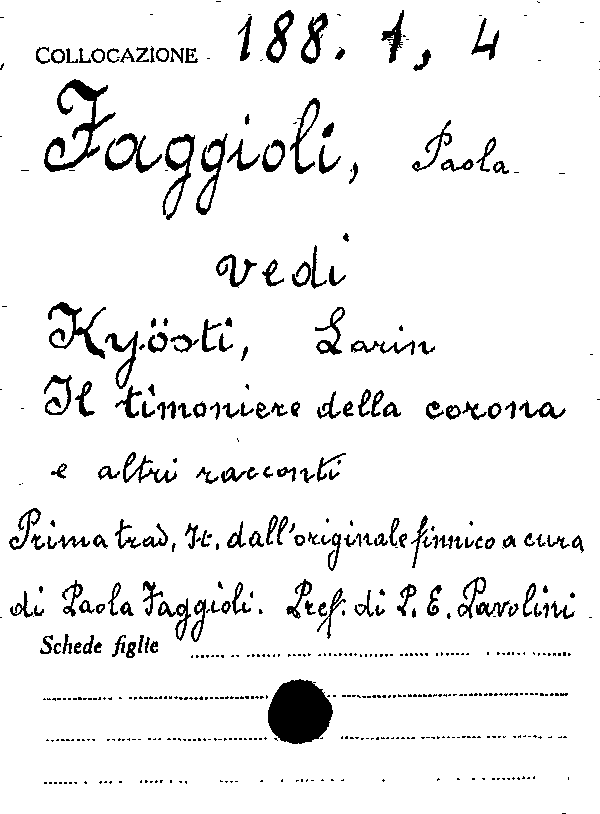 COLLOCAZIONE 188. 1, 4
Faggioli, Paola
vedi
Kyösti, Larin
Il timoniere della corona
e altri racconti
Prima trad. It. dall'originale finnico a cura
di Paola Faggioli. Pref. di P. E. Pavolini
Schede figlie